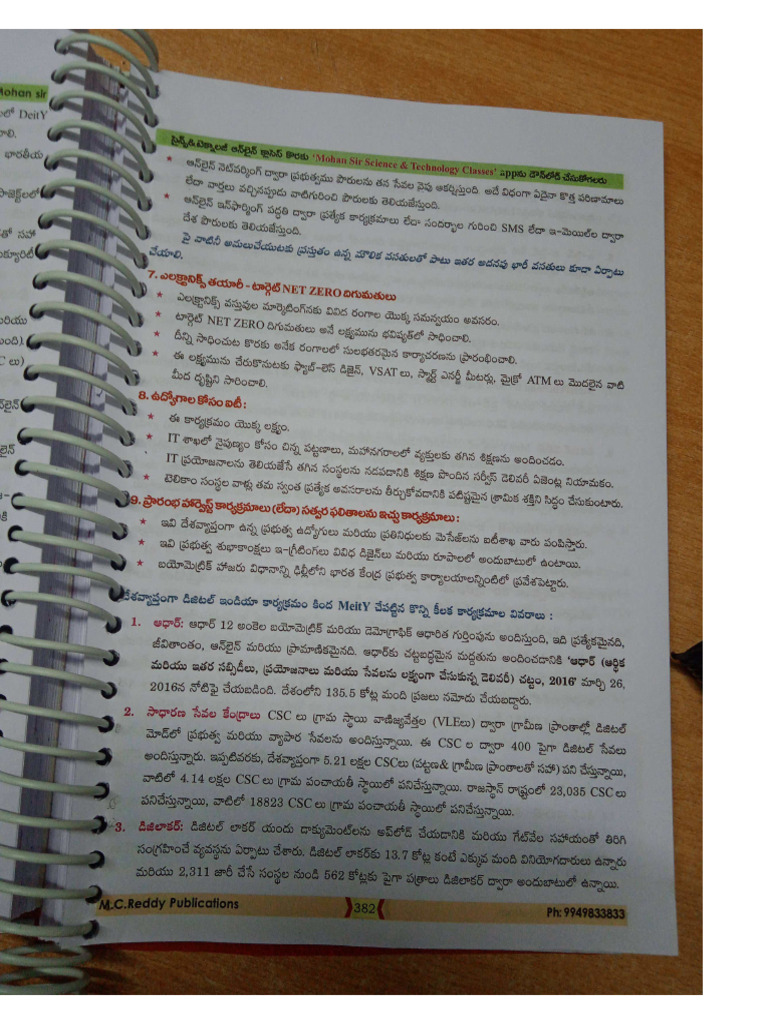 Mohan sir
లో DeitY
ాలి.
భారతీయ
ాజెక్ట్‌లలో
తో సహా
క్యూరిటీ
రియు
ుంది).
C లు)
లైన్
సైన్స్ & టెక్నాలజీ ఆన్‌లైన్ క్లాసెస్ కొరకు 'Mohan Sir Science & Technology Classes' appను డౌన్‌లోడ్ చేసుకోగలరు
★ ఆన్‌లైన్ నెట్‌వర్కింగ్ ద్వారా ప్రభుత్వము పౌరులను తన సేవల వైపు ఆకర్షిస్తుంది. అదే విధంగా ఏదైనా కొత్త పరిణామాలు
లేదా వార్తలు వచ్చినప్పుడు వాటిగురించి పౌరులకు తెలియజేస్తుంది.
★ ఆన్‌లైన్ ఇన్‌ఫార్మింగ్ పద్ధతి ద్వారా ప్రత్యేక కార్యక్రమాలు లేదా సందర్భాల గురించి SMS లేదా ఇ-మెయిల్‌ల ద్వారా
దేశ పౌరులకు తెలియజేస్తుంది.
పై వాటినీ అమలుచేయుటకు ప్రస్తుతం ఉన్న మౌలిక వసతులతో పాటు ఇతర అదనపు భారీ వసతులు కూడా ఏర్పాటు
చేయాలి.
7. ఎలక్ట్రానిక్స్ తయారీ - టార్గెట్ NET ZERO దిగుమతులు
★ ఎలక్ట్రానిక్స్ వస్తువుల మార్కెటింగ్‌నకు వివిద రంగాల యొక్క సమన్వయం అవసరం.
★ టార్గెట్ NET ZERO దిగుమతులు అనే లక్ష్యమును భవిష్యత్‌లో సాధించాలి.
★ దీన్ని సాధించుట కొరకు అనేక రంగాలలో సులభతరమైన కార్యాచరణను ప్రారంభించాలి.
★ ఈ లక్ష్యమును చేరుకొనుటకు ఫ్యాబ్-లెస్ డిజైన్, VSAT లు, స్మార్ట్ ఎనర్జీ మీటర్లు, మైక్రో ATM లు మొదలైన వాటి
మీద దృష్టిని సారించాలి.
8. ఉద్యోగాల కోసం ఐటీ :
★ ఈ కార్యక్రమం యొక్క లక్ష్యం.
★ IT శాఖలో నైపుణ్యం కోసం చిన్న పట్టణాలు, మహానగరాలలో వ్యక్తులకు తగిన శిక్షణను అందించడం.
IT ప్రయోజనాలను తెలియజేసే తగిన సంస్థలను నడపడానికి శిక్షణ పొందిన సర్వీస్ డెలివరీ ఏజెంట్ల నియామకం.
★ టెలికాం సంస్థల వాళ్లు తమ స్వంత ప్రత్యేక అవసరాలను తీర్చుకోవడానికి పటిష్టమైన శ్రామిక శక్తిని సిద్ధం చేసుకుంటారు.
9. ప్రారంభ హార్వెస్ట్ కార్యక్రమాలు (లేదా) సత్వర ఫలితాలను ఇచ్చు కార్యక్రమాలు :
★ ఇవి దేశవ్యాప్తంగా ఉన్న ప్రభుత్వ ఉద్యోగులు మరియు ప్రతినిధులకు మెసేజ్‌లను ఐటీశాఖ వారు పంపిస్తారు.
★ ఇవి ప్రభుత్వ శుభాకాంక్షలు ఇ-గ్రీటింగలు వివిధ డిజైన్‌లు మరియు రూపాలలో అందుబాటులో ఉంటాయి.
★ బయోమెట్రిక్ హాజరు విధానాన్ని ఢిల్లీలోని భారత కేంద్ర ప్రభుత్వ కార్యాలయాలన్నింటిలో ప్రవేశపెట్టారు.
దేశవ్యాప్తంగా డిజిటల్ ఇండియా కార్యక్రమం కింద MeitY చేపట్టిన కొన్ని కీలక కార్యక్రమాల వివరాలు :
1. ఆధార్: ఆధార్ 12 అంకెల బయోమెట్రిక్ మరియు డెమోగ్రాఫిక్ ఆధారిత గుర్తింపును అందిస్తుంది, ఇది ప్రత్యేకమైనది,
జీవితాంతం, ఆన్‌లైన్ మరియు ప్రామాణికమైనది. ఆధార్‌కు చట్టబద్ధమైన మద్దతును అందించడానికి 'ఆధార్ (ఆర్థిక
మరియు ఇతర సబ్సిడీలు, ప్రయోజనాలు మరియు సేవలను లక్ష్యంగా చేసుకున్న డెలివరీ) చట్టం, 2016' మార్చి 26,
2016న నోటిఫై చేయబడింది. దేశంలోని 135.5 కోట్ల మంది ప్రజలు నమోదు చేయబడ్డారు.
2. సాధారణ సేవల కేంద్రాలు CSC లు గ్రామ స్థాయి వాణిజ్యవేత్తల (VLEలు) ద్వారా గ్రామీణ ప్రాంతాల్లో డిజిటల్
మోడ్‌లో ప్రభుత్వ మరియు వ్యాపార సేవలను అందిస్తున్నాయి. ఈ CSC ల ద్వారా 400 పైగా డిజిటల్ సేవలు
అందిస్తున్నారు. ఇప్పటివరకు, దేశవ్యాప్తంగా 5.21 లక్షల CSCలు (పట్టణ& గ్రామీణ ప్రాంతాలతో సహా) పని చేస్తున్నాయి,
వాటిలో 4.14 లక్షల CSC లు గ్రామ పంచాయతీ స్థాయిలో పనిచేస్తున్నాయి. రాజస్థాన్ రాష్ట్రంలో 23,035 CSC లు
పనిచేస్తున్నాయి, వాటిలో 18823 CSC లు గ్రామ పంచాయతీ స్థాయిలో పనిచేస్తున్నాయి.
3. డిజిలాకర్: డిజిటల్ లాకర్ యందు డాక్యుమెంట్‌లను అప్‌లోడ్ చేయడానికి మరియు గేట్‌వేల సహాయంతో తిరిగి
సంగ్రహించే వ్యవస్థను ఏర్పాటు చేశారు. డిజిటల్ లాకర్‌కు 13.7 కోట్ల కంటే ఎక్కువ మంది వినియోగదారులు ఉన్నారు
మరియు 2,311 జారీ చేసే సంస్థల నుండి 562 కోట్లకు పైగా పత్రాలు డిజిలాకర్ ద్వారా అందుబాటులో ఉన్నాయి.
M.C.Reddy Publications
382
Ph: 9949833833